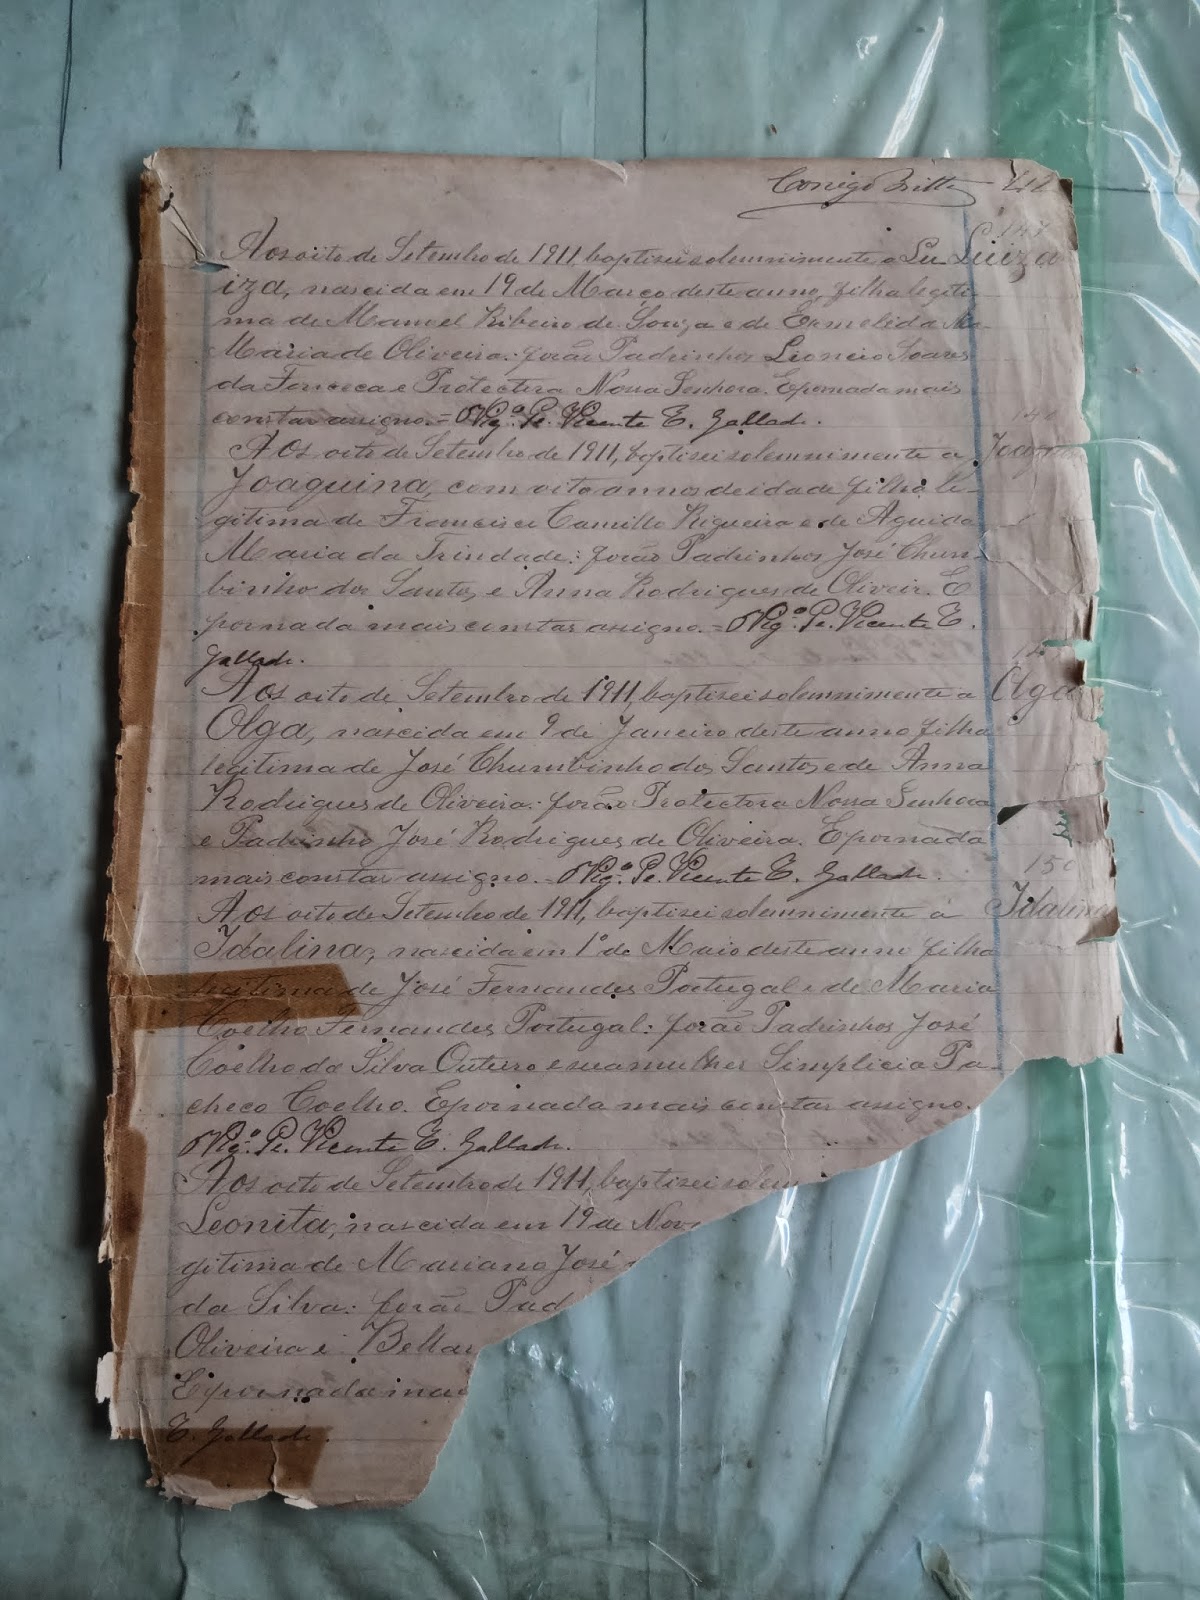 Conego Britto 42
147
Aos oito de Setembro de 1911, baptisei solemnimente a Lu- Luiza
iza, nascida em 19 de Março deste anno, filha legiti-
ma de Manoel Ribeiro de Souza e de Ermelida
Maria de Oliveira: forão Padrinhos Leoncio Soares
da Fonceca e Protectora Nossa Senhora. E por nada mais
constar assigno. = O Vigº. Pe. Vicente E. Gallade.
Aos oito de Setembro de 1911, baptisei solemnimente a
Joaquina, com oito annos de idade filha le-
gitima de Francisco Camillo Rigueira e de Aguida
Maria da Trindade: forão Padrinhos José Chum-
binho dos Santos, e Anna Rodrigues de Oliveir. E
por nada mais constar assigno. = O Vigº. Pe. Vicente E.
Gallade.
Aos oito de Setembro de 1911, baptisei solemnimente a Olga
Olga, nascida em 9 de Janeiro deste anno filha
legitima de José Chumbinho dos Santos e de Anna
Rodrigues de Oliveira: forão Protectora Nossa Senhora
e Padrinho José Rodrigues de Oliveira. E por nada
mais constar assigno. O Vigº. Pe. Vicente E. Gallade.
150
Aos oito de Setembro de 1911, baptisei solemnimente á Idalina
Idalina, nascida em 1º de Maio deste anno filha
legitima de José Fernandes Portugal e de Maria
Coelho Fernandes Portugal: forão Padrinhos José
Coelho da Silva Outeiro e sua mulher Simplicia Pa-
checo Coelho. E por nada mais constar assigno.
O Vigº. Pe. Vicente E. Gallade.
Aos oito de Setembro de 1911, baptisei solem
Leonita, nascida em 19 de Nov
gitima de Mariano José
da Silva: forão Pad
Oliveira e Bellar
E por nada mai
E. Gallade.